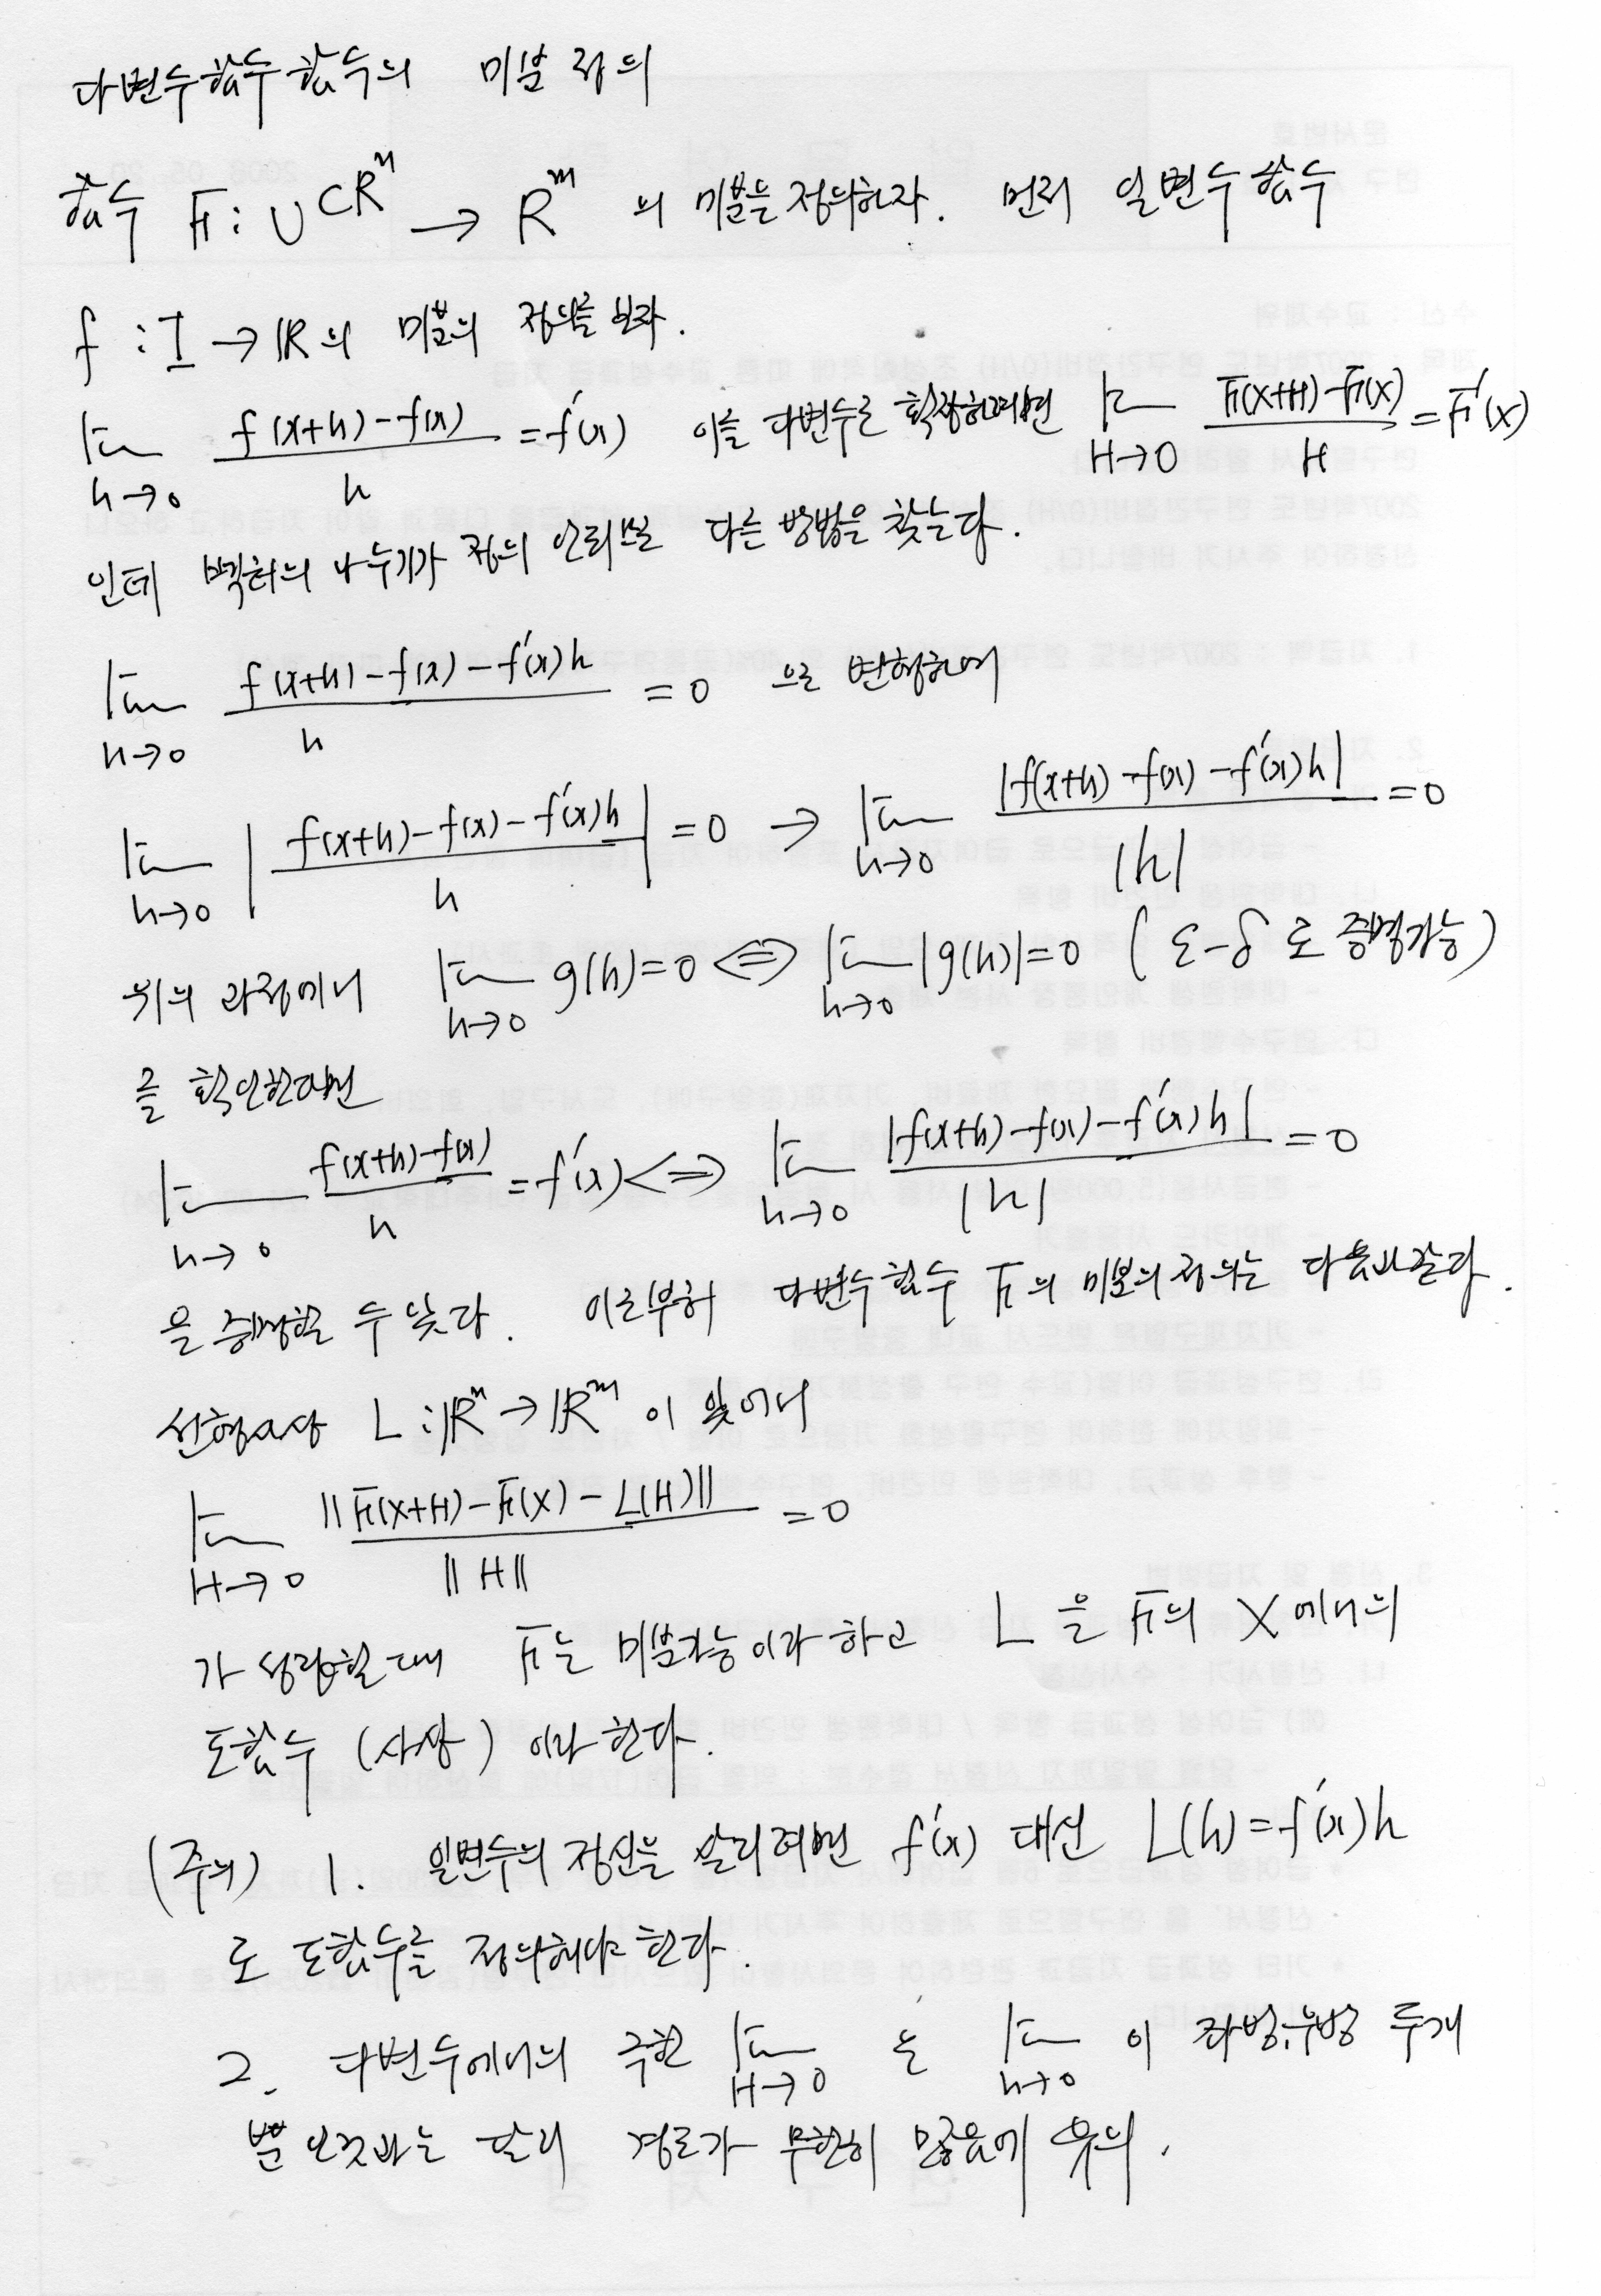 다변수함수함수의 미분 정의
함수 F : U ⊂ R^n → R^m 의 미분을 정의하자. 먼저 일변수함수
f : I → R의 미분의 정의를 보자.
lim_{h→0} (f(x+h)-f(x))/h = f'(x) 이를 다변수로 확장하려면 lim_{H→0} (F(X+H)-F(X))/H = F'(X)
인데 벡터의 나누기가 정의 안되므로 다른 방법을 찾는다.
lim_{h→0} (f(x+h)-f(x)-f'(x)h)/h = 0 으로 변형하여
lim_{h→0} |(f(x+h)-f(x)-f'(x)h)/h| = 0 → lim_{h→0} |f(x+h)-f(x)-f'(x)h|/|h| = 0
위의 과정에서 lim_{h→0} g(h)=0 ⟺ lim_{h→0} |g(h)|=0 ( ε-δ 로 증명가능 )
를 확인한다면
lim_{h→0} (f(x+h)-f(x))/h = f'(x) ⟺ lim_{h→0} |f(x+h)-f(x)-f'(x)h|/|h| = 0
을 증명할 수 있다. 이로부터 다변수함수 F의 미분의 정의는 다음과 같다.
선형사상 L : R^n → R^m 이 있어서
lim_{H→0} ||F(X+H)-F(X)-L(H)||/||H|| = 0
가 성립할 때 F는 미분가능이라 하고 L 을 F의 X에서의
도함수 (사상) 이라 한다.
(주의) 1. 일변수의 정신을 살리려면 f'(x) 대신 L(h)=f'(x)h
로 도함수를 정의해야 한다.
2. 다변수에서의 극한 lim_{H→0} 는 lim_{h→0} 이 좌방, 우방 두개
뿐인것과는 달리 경로가 무한히 많음에 유의.